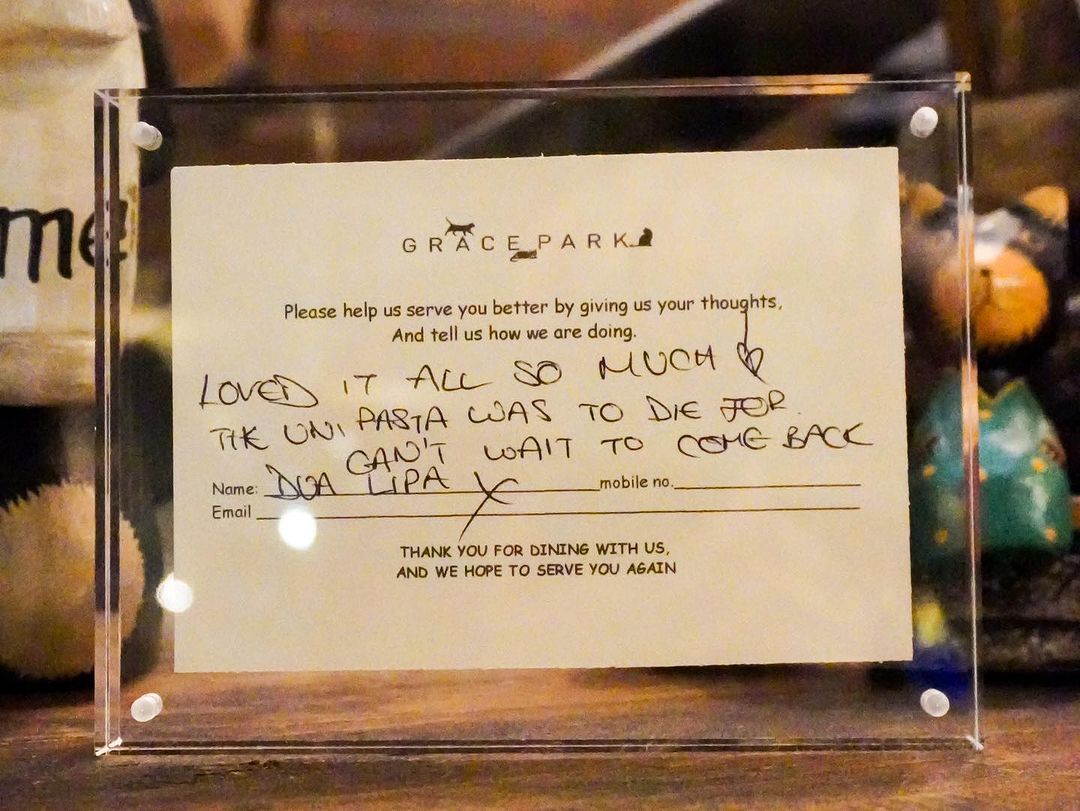 me
GRACE PARK
Please help us serve you better by giving us your thoughts,
And tell us how we are doing.
LOVED IT ALL SO MUCH
THE UNI PASTA WAS TO DIE FOR.
CAN'T WAIT TO COME BACK
Name: DUA LIPA X mobile no.
Email
THANK YOU FOR DINING WITH US,
AND WE HOPE TO SERVE YOU AGAIN